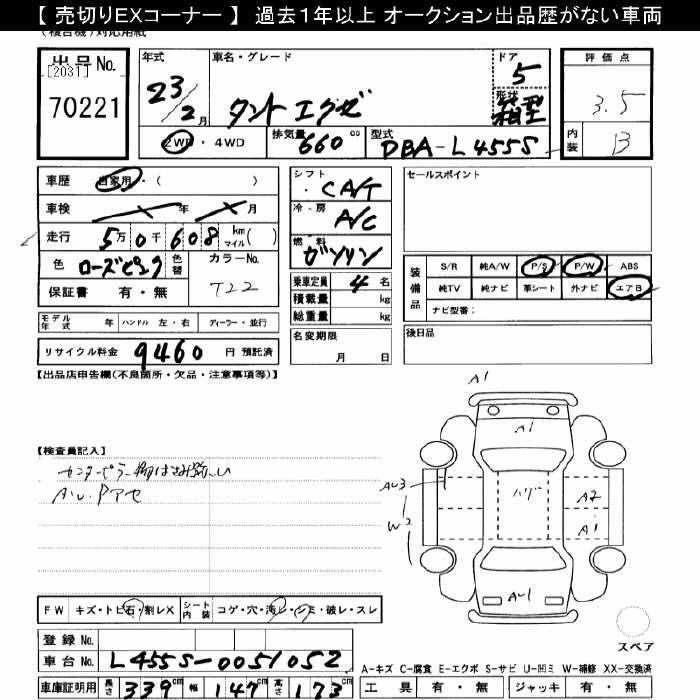 【 売切りEXコーナー 】 過去１年以上 オークション出品歴がない車両
(複合機)対応用紙
出品No.
[2031]
70221
年式
23/2月
車名・グレード
タント エグゼ
ドア
5
形状
箱型
2WD ・ 4WD
排気量 660 cc
型式 DBA-L455S
評価点
3.5
内装 B
車歴 自家用・( )
車検 年 月
走行 5万0千608 km マイル( )
色 ローズピンク 色替
カラーNo.
T22
保証書 有・無
モデル年式 年 ハンドル 左・右 ディーラー・並行
リサイクル料金 9460 円 預託済
シフト
CA/T
冷・房
A/C
燃料
ガソリン
乗車定員 4 名
積載量 kg
総重量 kg
名変期限
月 日
セールスポイント
装備品
S/R 純A/W P/S P/W ABS
純TV 純ナビ 革シート 外ナビ エアB
ナビ型番:
後日品
【出品店申告欄(不良箇所・欠品・注意事項等)】
【検査員記入】
センターピラー
AU.Pアセ
A1
A1
AU3
W2
ハゲ
A2
A1
AU1
スペア
FW キズ・トビ石・割レX
シート内装 コゲ・穴・汚レ・シミ・破レ・スレ
登録No.
車台No. L455S-0051052
車庫証明用 長さ 339cm 幅 147cm 高さ 173cm
A-キズ C-腐食 E-エクボ S-サビ U-凹ミ W-補修 XX-交換済
工具 有・無 ジャッキ 有・無